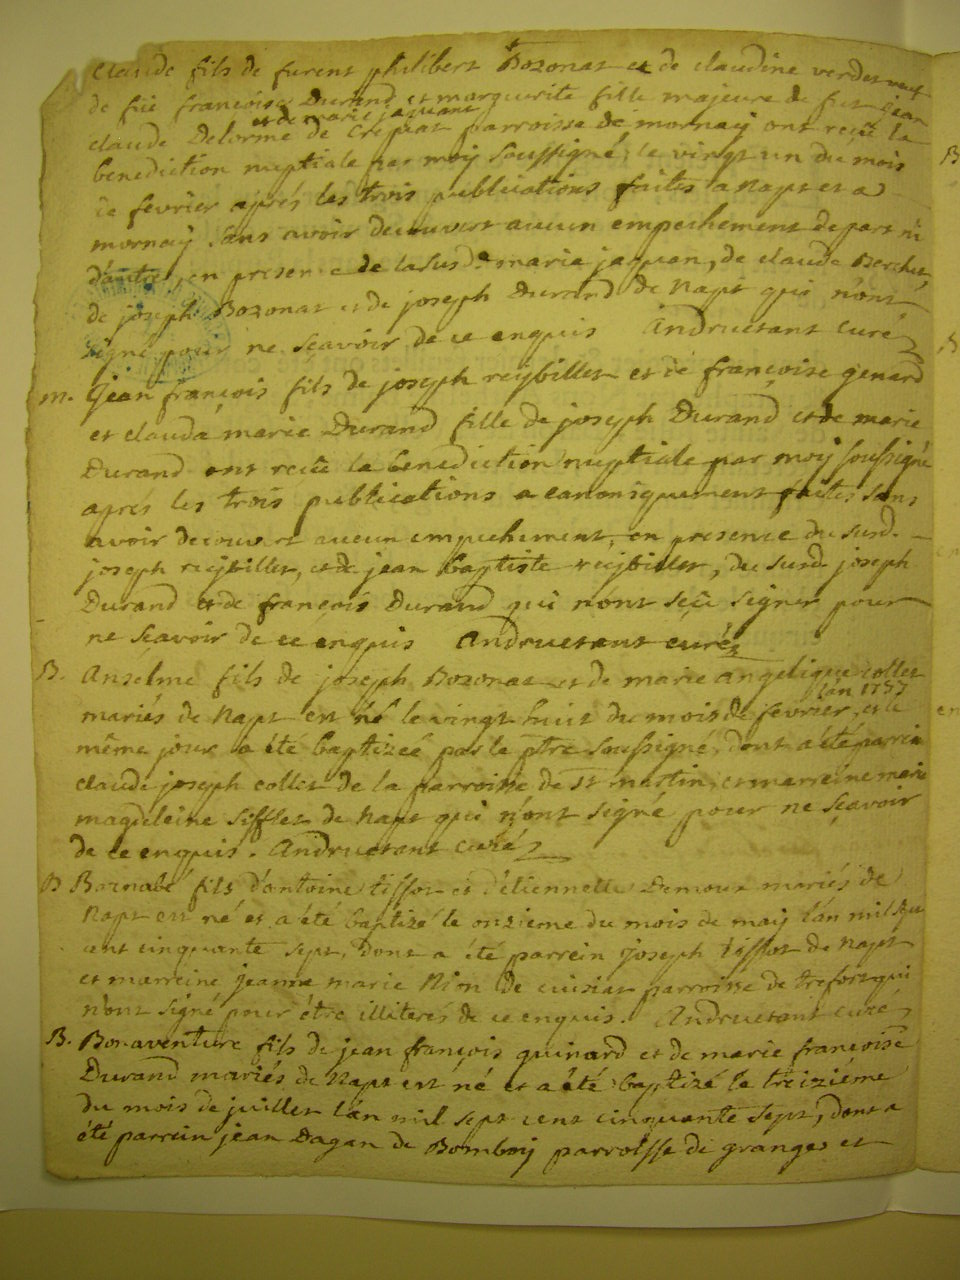 Claude fils de furent philibert Bozonat et de claudine verdet veuf
de füe françoise Durand et marguerite fille majeure de fut jean
et de marie jaquant
claude Delorme de Crepiat parroisse de mornay ont reçû la
benediction nuptiale par moy soussigné, le vingt un du mois
de fevrier aprés les trois publications faites a Napt et a
mornay sans avoir decouvert aucun empechement de part ni
d'autre, en presence de lasusde marie jaquan, de claude Berchet,
de joseph Bozonat et de joseph Durand de Napt qui n'ont
signé pour ne sçavoir de ce enquis Andruetant curé
m. jean françois fils de joseph reybillet et de françoise genard
et clauda marie Durand fille de joseph Durand et de marie
Durand ont reçû la benediction nuptiale par moy soussigné
aprés les trois publications canoniquement faites sans
avoir decouvert aucun empechement, en presence du susd.
joseph reybillet, et de jean baptiste reybillet, du susd. joseph
Durand et de françois Durand qui n'ont sçû signer pour
ne sçavoir de ce enquis Andruetant curé
B. Anselme fils de joseph Bozonat et de marie angelique collet
lan 1757
mariés de Napt est né le vingt huit du mois de fevrier, et le
même jour a été baptizeé par le ptre soussigné, dont a été parrein
claude joseph collet de la parroisse de st martin, et marreine marie
magdeleine sifflet de Napt qui n'ont signé pour ne sçavoir
de ce enquis. Andruetant curé
B Barnabé fils d'antoine tissot et d'étiennette Demoux mariés de
Napt est né et a été baptizé le onzieme du mois de may l'an mil sept
cent cinquante sept, dont a été parrein joseph tissot de Napt
et marreine jeanne marie Nion de cuisiat parroisse de trefort qui
n'ont signé pour être illiterés de ce enquis. Andruetant curé
B. Bonaventure fils de jean françois guinard et de marie françoise
Durand mariés de Napt est né et a été baptizé le treiziéme
du mois de juillet l'an mil sept cent cinquante sept, dont a
été parrein jean Dagan de Bomboy parroisse de granges et